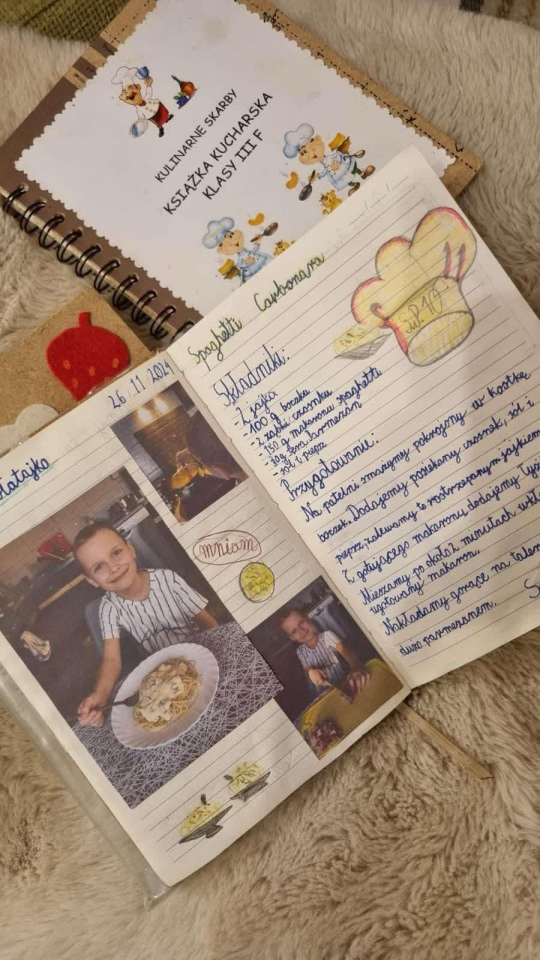 KULINARNE SKARBY
KSIĄŻKA KUCHARSKA
KLASY III F
26/11/2024
mniam
Spaghetti Carbonara
S.P. 10
Składniki:
- 2 jajka
- 100 g boczku
- 2 ząbki czosnku
- 150 g makaronu spaghetti
- 30g sera parmezan
- sól i pieprz
Przygotowanie:
Na patelni smażymy pokrojony w kostkę
boczek. Dodajemy posiekany czosnek, sól i
pieprz, zalewamy to roztrzepanym jajkiem.
Z gotującego makaronu dodajemy
Mieszamy po około 2 minutach
ugotowany makaron.
Nakładamy gorące na
dużo parmezanem.